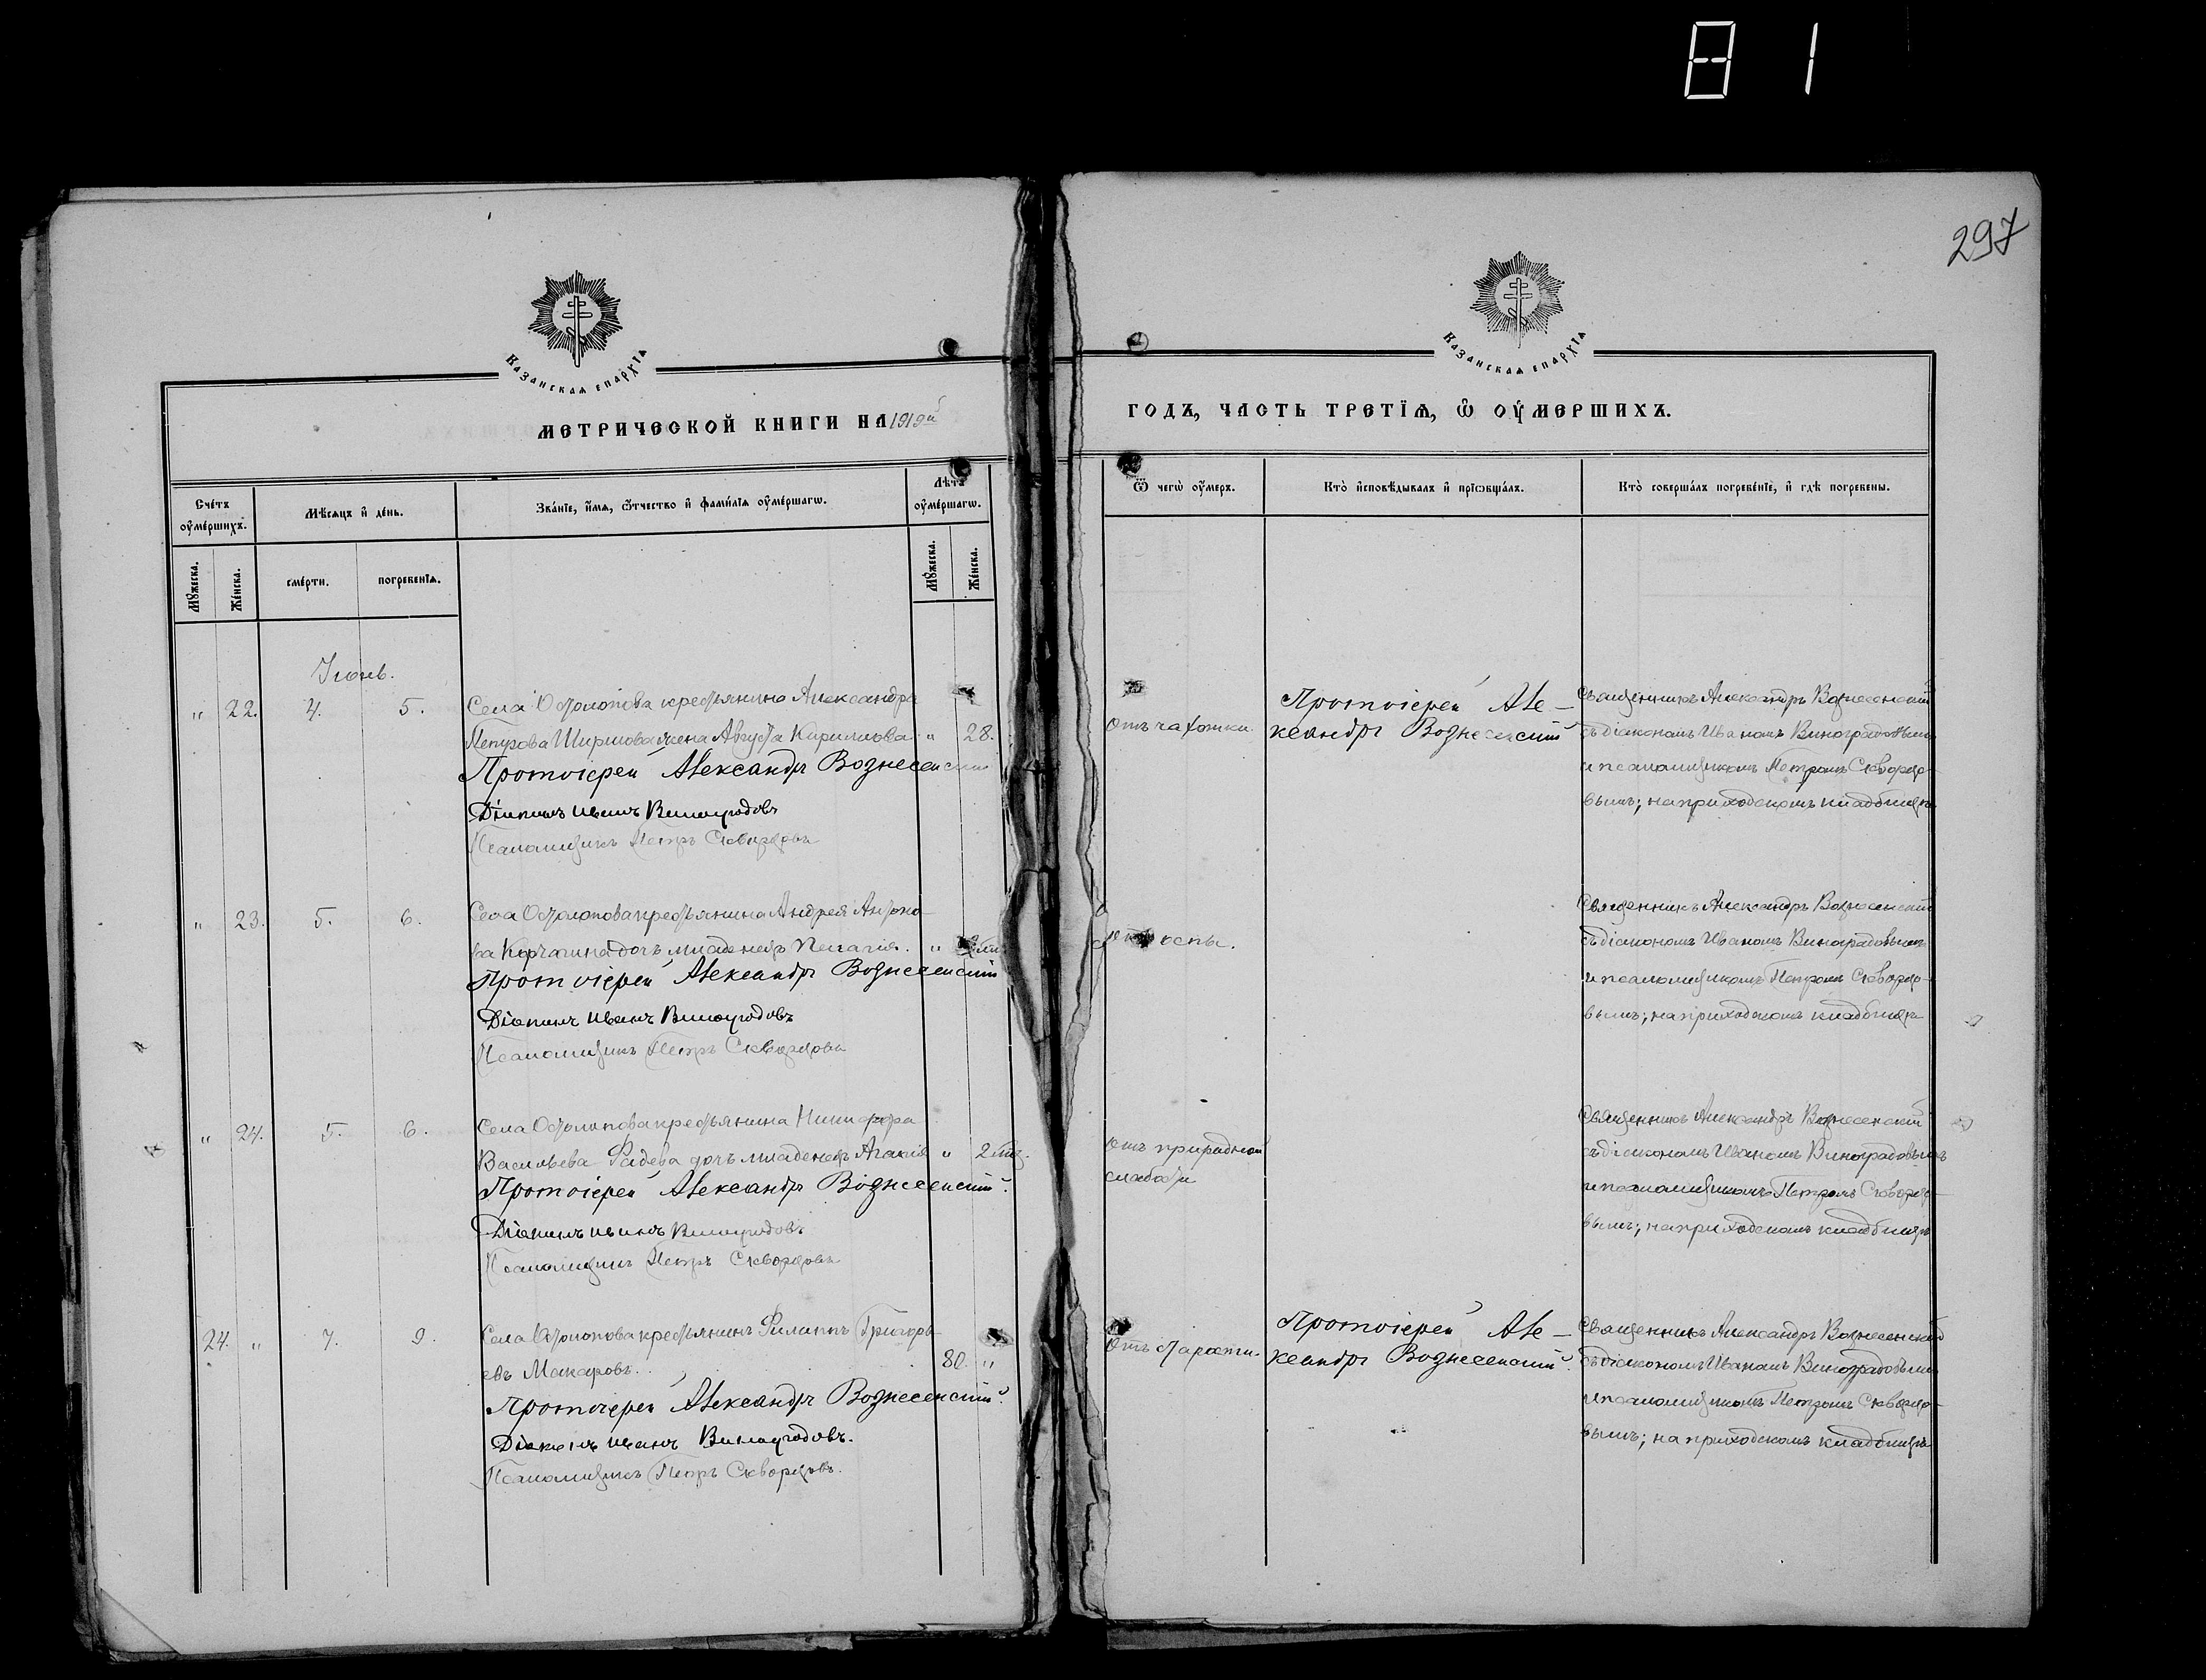 81
297
Казанская епархїѧ
Казанская епархїѧ
МЕТРИЧЕСКОЙ КНИГИ НА 1919й
ГОДЪ, ЧАСТЬ ТРЕТЇѦ, Ѡ ОУМЕРШИХЪ.
Счетъ оумершихъ.
Мѣсяцъ и день.
Званїе, имѧ, ѿчество и фамилїѧ оумершагѡ.
Лѣта оумершагѡ.
Ѿ чегѡ оумеръ.
Кто исповѣдывалъ и прїѡбщалъ.
Кто совершалъ погребенїе, и гдѣ погребены.
Мꙋжеска.
Женска.
смерти.
погребенїѧ.
Мꙋжеска.
Женска.
Іюнь.
" 22. 4. 5. Села Остолопова крестьянина Александра
Петрова Ширшова жена Августа Кириллова. " 28.
Протоіерей Александръ Вознесенскій
Діаконъ Иванъ Виноградовъ
Псаломщикъ Петръ Скворцовъ
Отъ чахотки.
Протоіерей Але-
ксандръ Вознесенскій
Священникъ Александръ Вознесенскій
съ діакономъ Иваномъ Виноградовымъ
и псаломщикомъ Петромъ Скворцо-
вымъ; на приходскомъ кладбищѣ
" 23. 5. 6. Села Остолопова крестьянина Андрея Антоно-
ва Корчагина дочь младенецъ Пелагія. "
Протоіерей Александръ Вознесенскій
Діаконъ Иванъ Виноградовъ
Псаломщикъ Петръ Скворцовъ
оспы.
Священникъ Александръ Вознесенскій
съ діакономъ Иваномъ Виноградовымъ
и псаломщикомъ Петромъ Скворцо-
вымъ; на приходскомъ кладбищѣ
" 24. 5. 6. Села Остолопова крестьянина Никифора
Васильева Фадева дочь младенецъ Агапія " 2 мѣс.
Протоіерей Александръ Вознесенскій.
Діаконъ Иванъ Виноградовъ
Псаломщикъ Петръ Скворцовъ
Отъ природной
слабости
Священникъ Александръ Вознесенскій
съ діакономъ Иваномъ Виноградовымъ
и псаломщикомъ Петромъ Скворцо-
вымъ; на приходскомъ кладбищѣ
24. " 7. 9. Села Остолопова крестьянинъ Филиппъ Григорь-
евъ Макаровъ. 80. "
Протоіерей Александръ Вознесенскій.
Діаконъ Иванъ Виноградовъ.
Псаломщикъ Петръ Скворцовъ.
Отъ старости.
Протоіерей Але-
ксандръ Вознесенскій.
Священникъ Александръ Вознесенскій
съ діакономъ Иваномъ Виноградовымъ
и псаломщикомъ Петромъ Скворцо-
вымъ; на приходскомъ кладбищѣ